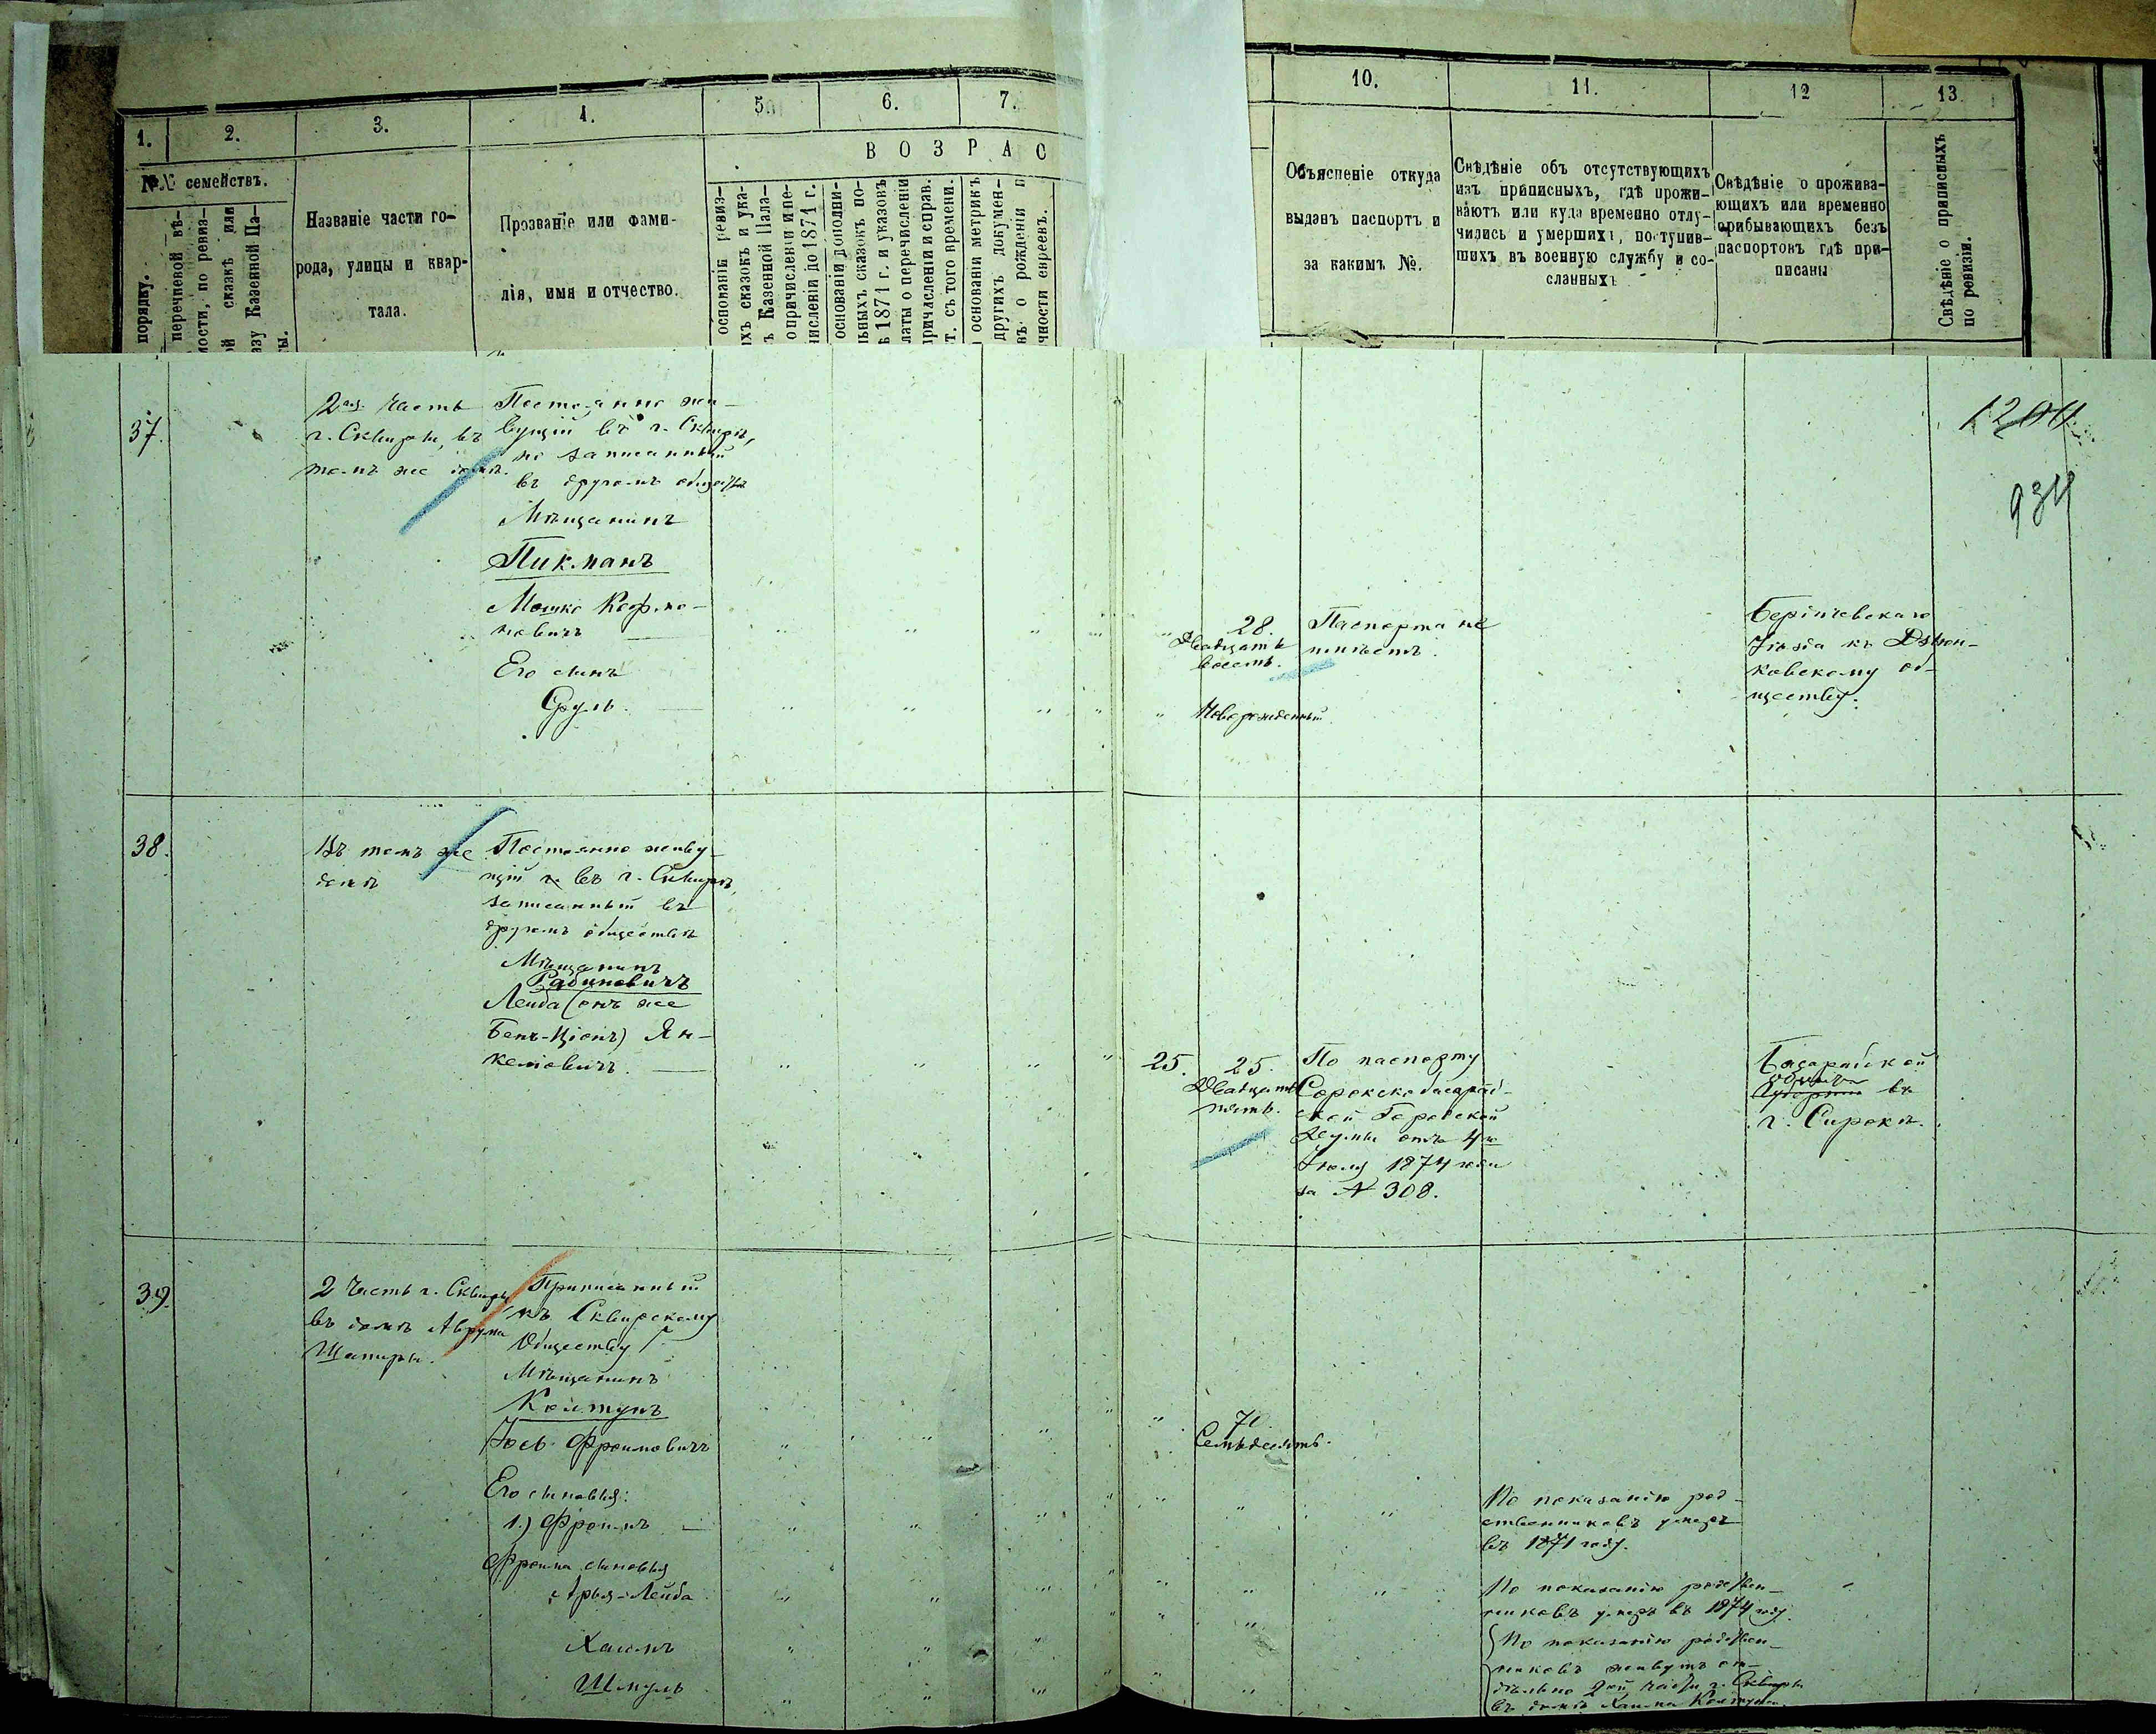 1.
2.
3.
4.
5.
6.
7.
10.
11.
12
13.
В О З Р А С
№№ семействъ.
порядку.
перечневой вѣ-
мости, по ревиз-
ой сказкѣ или
азу Казенной Па-
ты.
Названіе части го-
рода, улицы и квар-
тала.
Прозваніе или фами-
лія, имя и отчество.
основаніи ревиз-
ихъ сказокъ и ука-
ъ Казенной Пала-
о причисленіи и пе-
ислені до 1871 г.
основаніи дополни-
льныхъ сказокъ по-
ѣ 1871 г. и указовъ
латы о перечисленіи
ричисленіи и справ.
т. съ того времени.
основаніи метрикъ
другихъ докумен-
въ о рожденіи и
ичности евреевъ.
Объясненіе откуда
выданъ паспортъ и
за какимъ №.
Свѣдѣніе объ отсутствующихъ
изъ приписныхъ, гдѣ прожи-
ваютъ или куда временно отлу-
чились и умершихъ, поступив-
шихъ въ военную службу и со-
сланныхъ
Свѣдѣніе о прожива-
ющихъ или временно
прибывающихъ безъ
паспортовъ гдѣ при-
писаны
Свѣдѣніе о приписныхъ
по ревизіи.
37.
2ая Часть
г. Сквиры, въ
томъ же домѣ.
Постоянно жи-
вущій въ г. Сквирѣ,
но записанный
въ другомъ обществѣ
Мѣщанинъ
Пикманъ
Мошко
новичъ
Его сынъ
Сруль.
28.
Двадцать
восемь.
Новорожденный.
Паспорта не
имѣетъ.
Бердичевскаго
Уѣзда къ
ковскому об-
ществу.
934
38.
Въ томъ же
домѣ
Постоянно живу-
щій въ г. Сквирѣ,
записанный въ
другомъ обществѣ
Мѣщанинъ
Рабиновичъ
Лейба (онъ же
Бенъ-Ціонъ) Ян-
келіовичъ.
25.
25.
Двадцать
пять.
По паспорту
ской Городской
Думы отъ 4го
Іюля 1874 года
за № 308.
въ
г. Сироки.
39.
2 Часть г. Сквиры,
въ домѣ Аврума
Шапиры.
Приписанный
къ Сквирскому
Обществу
Мѣщанинъ
Колтунъ
Іось Фроимовичъ
Его сыновья:
1.) Фроимъ
Фроима сыновья
Арья-Лейба
Хаимъ
Шмуль
70.
Семьдесятъ.
По показанію род-
ственниковъ умеръ
въ 1871 году.
По показанію родствен-
никовъ умеръ въ 1874 году.
По показанію родствен-
никовъ живутъ от-
дѣльно 2ой части г. Сквиры
въ домѣ Хаима Колтуна